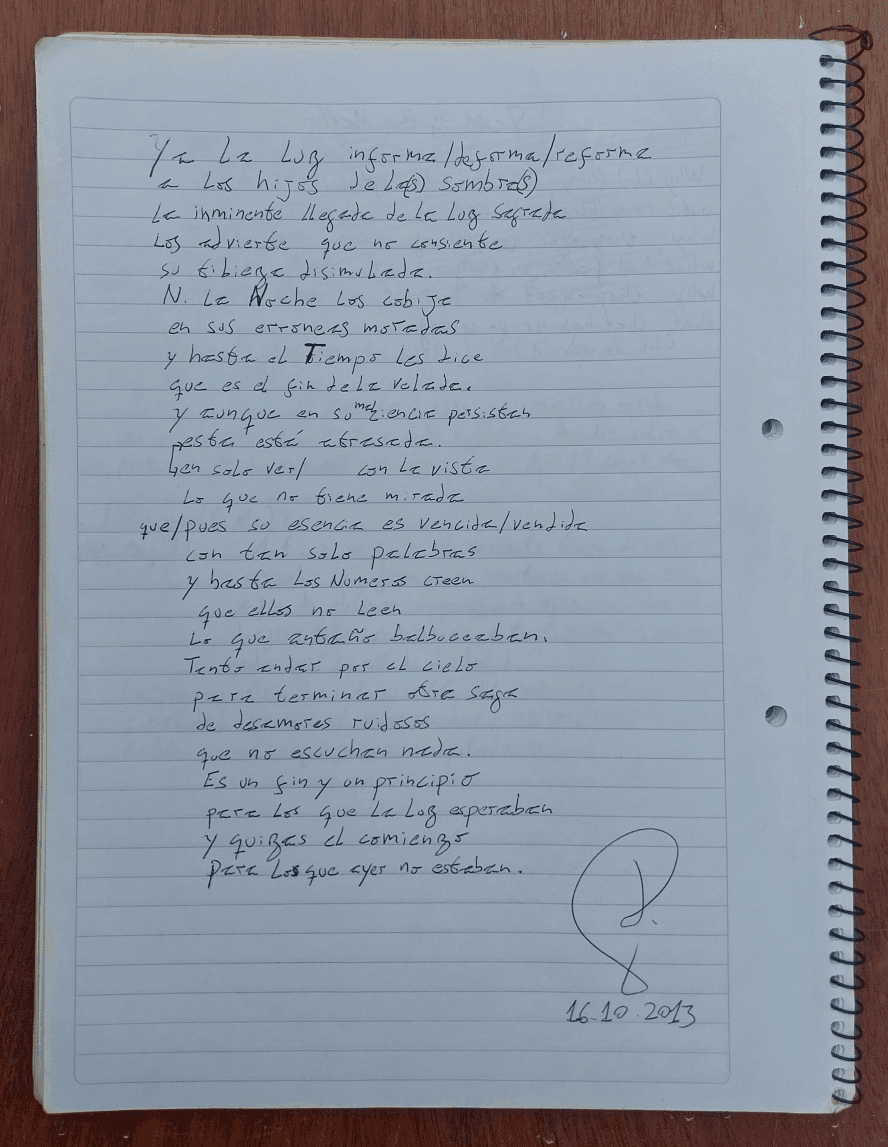 Ya La Luz informa/deforma/reforma
a Los hijos de La(s) sombra(s)
La inminente llegada de La Luz sagrada
Los advierte que no consiente
su tibieza disimulada.
N. La Noche Los cobija
en sus erroneas moradas
y hasta el Tiempo Les dice
que es el fin de La velada.
y aunque en su persistan
esta está atrasada.
en solo ver/ con La vista
Lo que no tiene mirada
que/pues su esencia es vencida/vendida
con tan solo palabras
y hasta Los Numeros creen
que ellos no Leen
Lo que antaño balbuceaban.
Tanto andar por el cielo
para terminar otra saga
de desamores ruidosos
que no escuchan nada.
Es un fin y un principio
para Los que La Luz esperaban
y quizas el comienzo
para Los que ayer no estaban.
16.10.2013